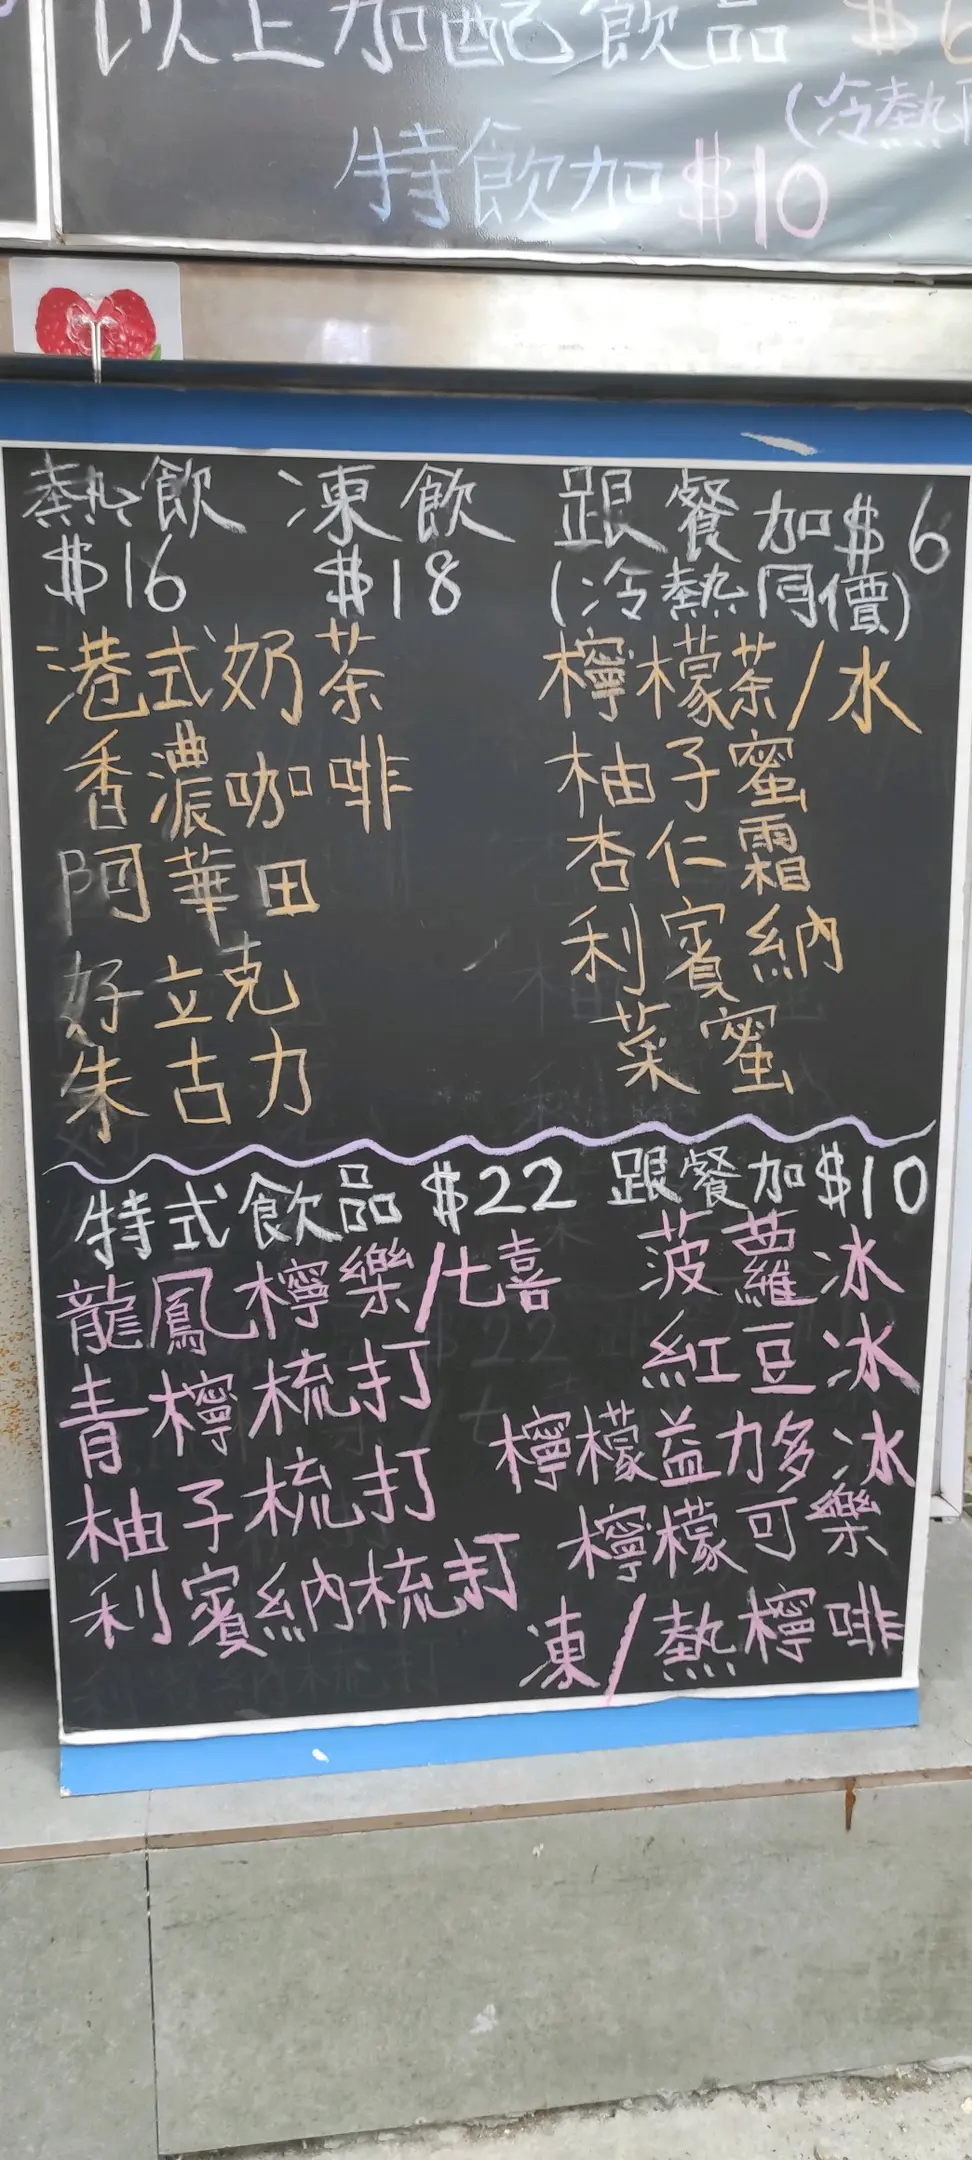 以上加配飲品 $6
(冷熱同
特飲加$10
熱飲 凍飲 跟餐加$6
$16 $18 (冷熱同價)
港式奶茶 檸檬茶/水
香濃咖啡 柚子蜜
阿華田 杏仁霜
好立克 利賓納
朱古力 菜蜜
特式飲品 $22 跟餐加$10
龍鳳檸樂/七喜 菠蘿冰
青檸梳打 紅豆冰
柚子梳打 檸檬益力多冰
利賓納梳打 檸檬可樂
凍/熱檸啡